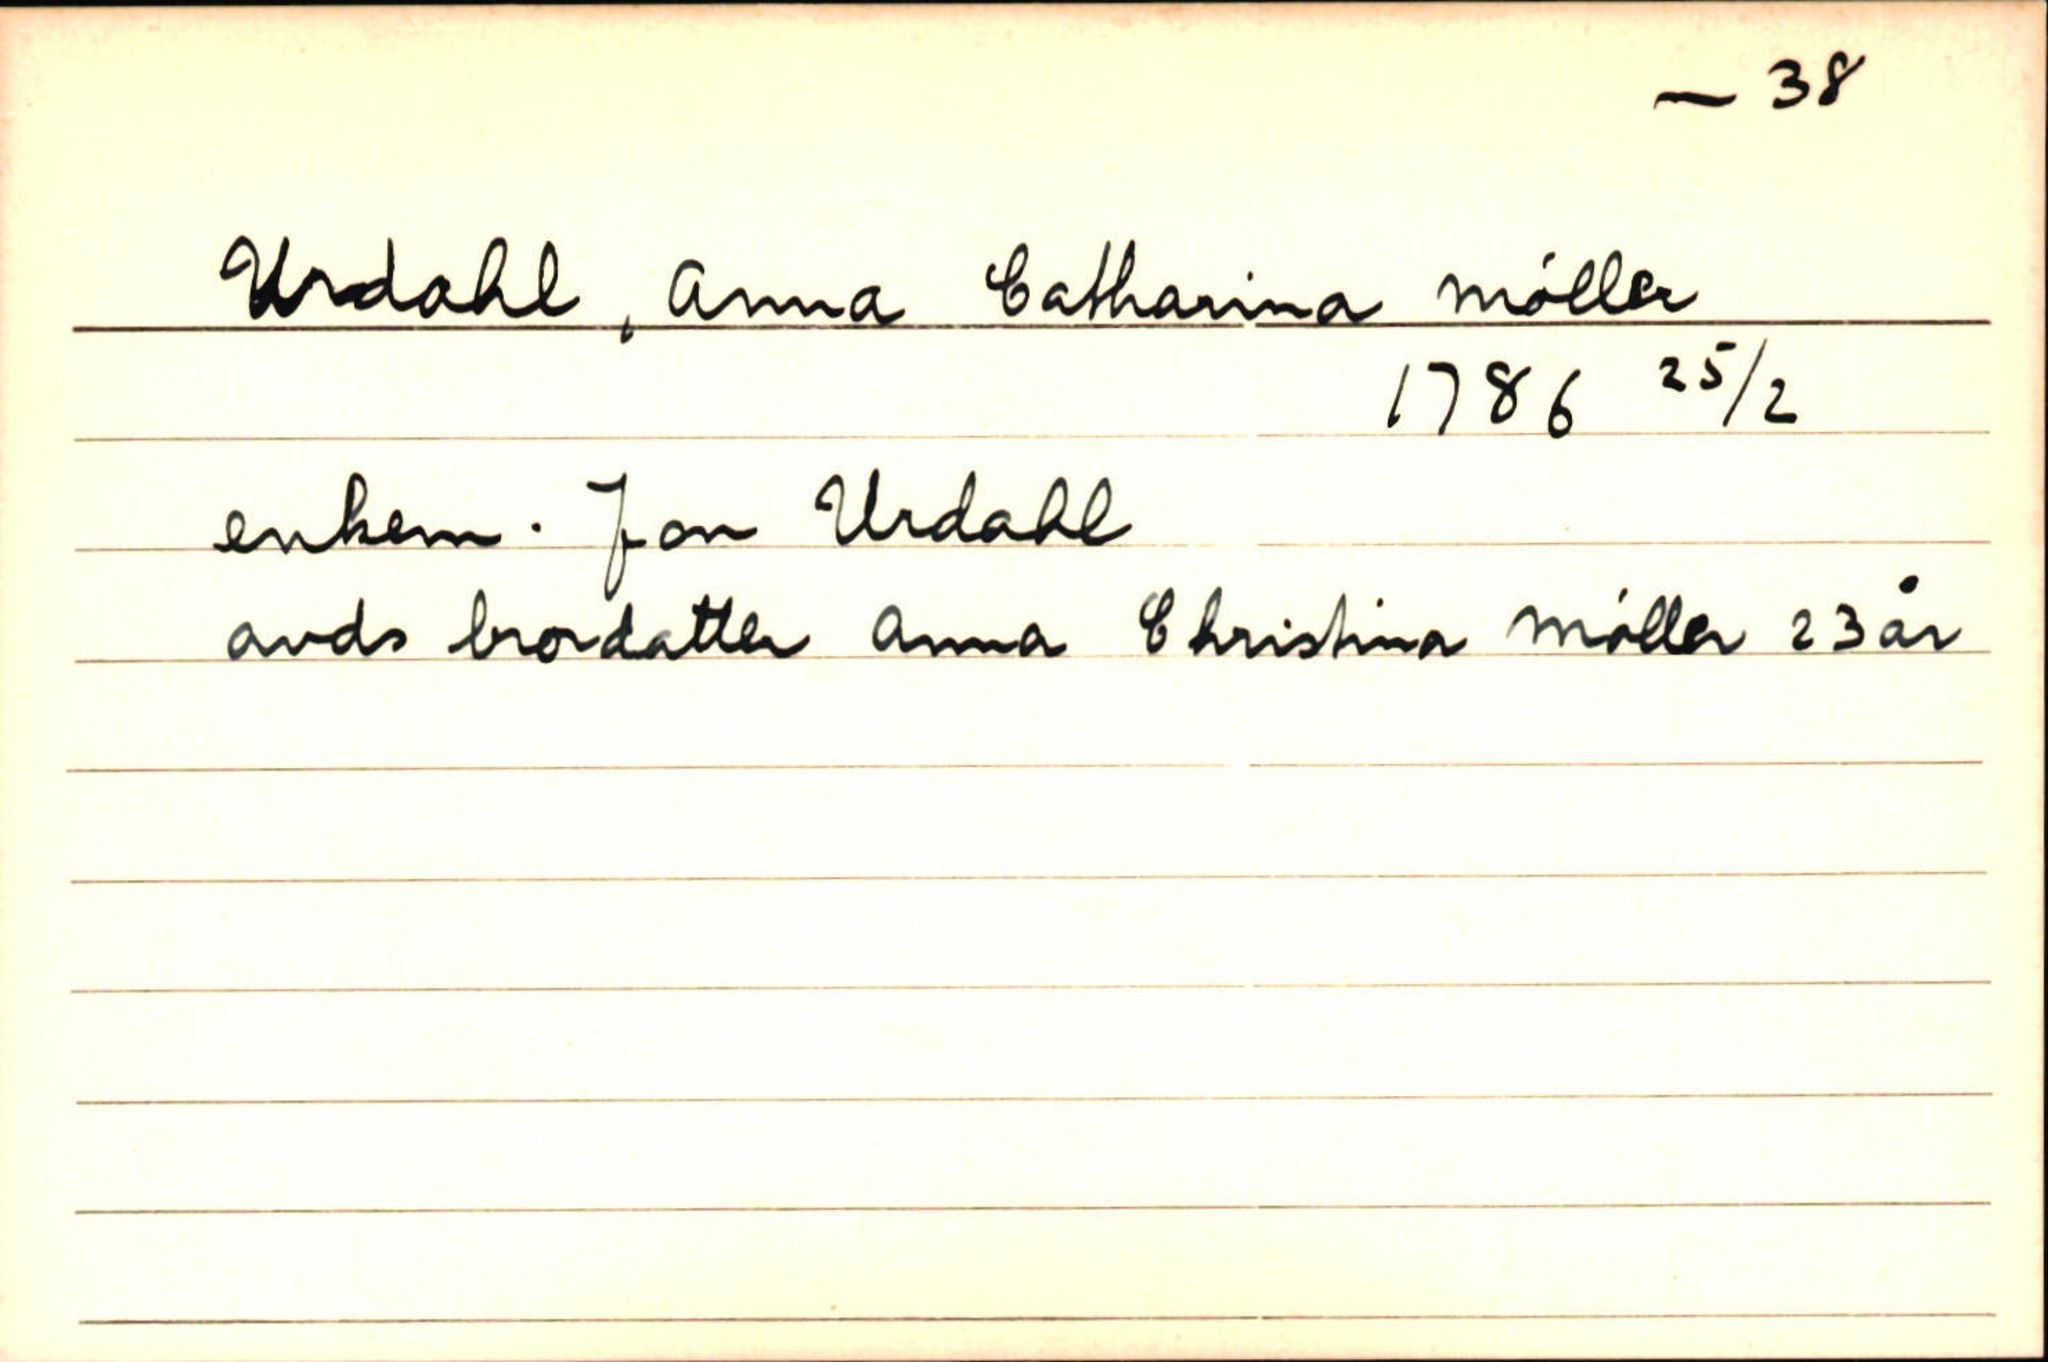 — 38
Urdahl, Anna Catharina Møller
1786 25/2
enkem. Jon Urdahl
avds brordatter Anna Christina Møller 23 år